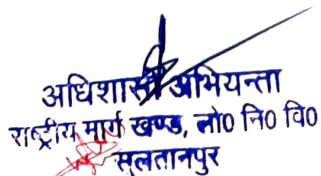 अधिशासी अभियन्ता
राष्ट्रीय मार्ग खण्ड, लो0 नि0 वि0
सुलतानपुर